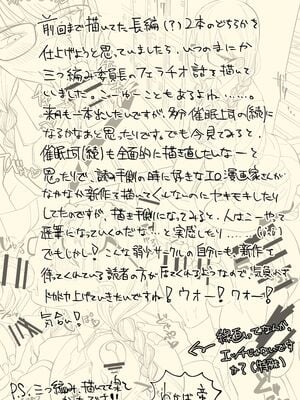 前回まで描いてた長編(?)2本のどちらかを
仕上げようと思っていましたら、いつのまにか
三つ編み委員長のフェラチオ話を描いて
いました。こーゆーこともあるよね……。
来月も一本出したいですが、多分催眠上司(続)に
なるかなあと思ったりです。でも今見てみると、
催眠上司(続)も全面的に描き直したいなーと
思ったりで、読む側の時に好きなエロ漫画家さんが
なかなか新作を描いてくんないのにヤキモキしたり
してたのですが、描き側になってみると、人はこーやって
遅筆になっていくのだな…!と実感したり……
でもしかし!こんな弱小サークルの自分にも、新作を
待ってくれている読者の方が居てくれるようなので、
仕上げていきたいですね!ウオー!ワオー!
気合い!
線画ってなんか、
エッチじゃないです
か?
P.S. 三つ編み、描いてて楽し